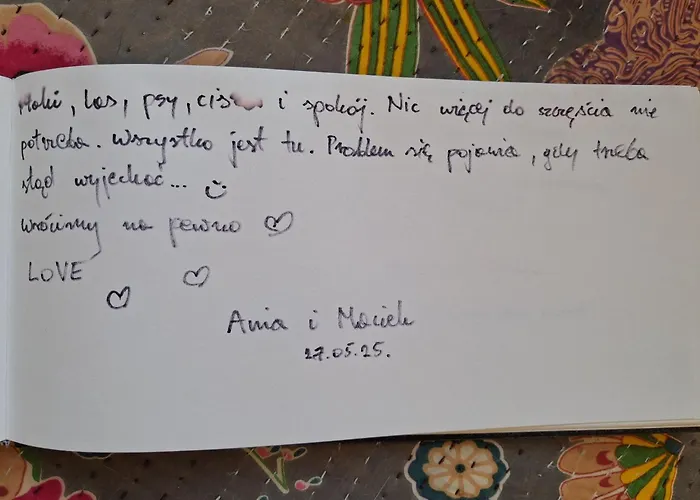 , las, psy, cisza i spokój. Nic więcej do szczęścia nie
potrzeba. Wszystko jest tu. Problem się pojawia, gdy trzeba
stąd wyjechać... :)
wrócimy na pewno ♡
LOVE
♡ ♡
Ania i Maciek
27.05.25.